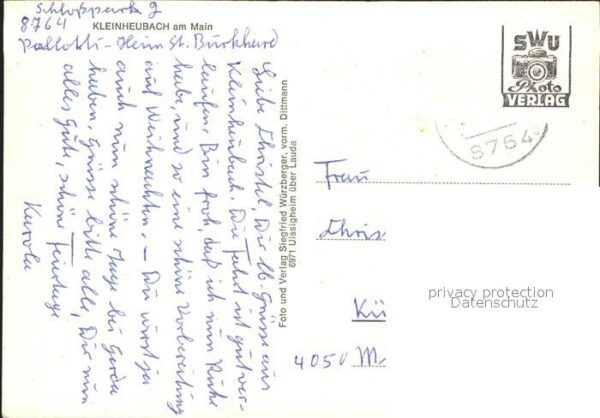 Schloßpark 2
8764
KLEINHEUBACH am Main
Pallotti-Heim St. Burkhard
Liebe Christel, Dir lb. Grüsse aus
Kleinheubach. Die Fahrt ist gut ver-
laufen. Bin froh, daß ich nun Ruhe
habe und so eine schöne Vorbereitung
auf Weihnachten. – Du wirst ja
auch nun schöne Tage bei Gerda
haben. Grüsse bitte alle, Dir nun
alles Gute, schöne Feiertage
Karola
Foto und Verlag Siegfried Würzberger, vorm. Dittmann
6971 Uissigheim über Lauda
SWU
Photo
VERLAG
8764
Frau
Chris
Kü
4050 M
privacy protection
Datenschutz